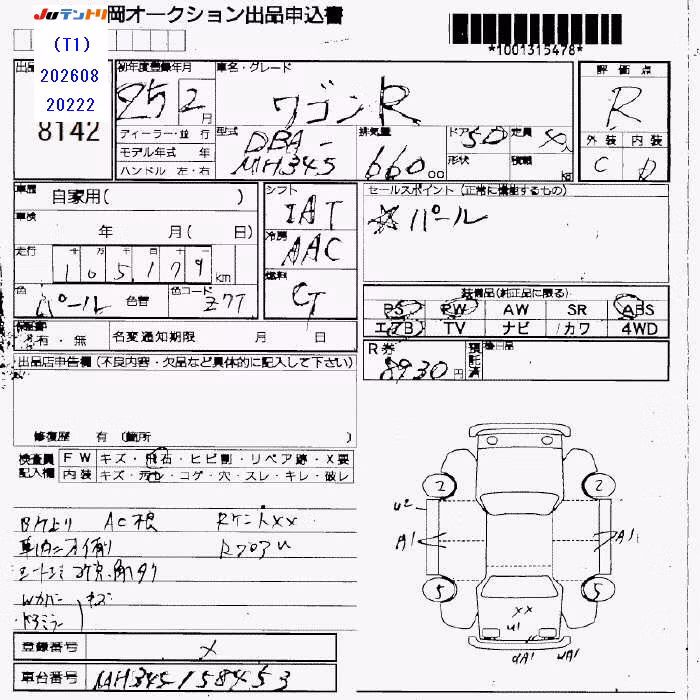 Juテントリ 岡オークション出品申込書
*1001315478*
(T1)
202608
20222
8142
出品
初年度登録年月
25 2 月
車名・グレード
ワゴンR
評価点
R
外装 内装
C D
ディーラー・並行
モデル年式 年
ハンドル 左・右
型式
DBA-
MH34S
排気量
660 00
ドア 5D
定員
形状
積載 kg
車歴 自家用( )
車検 年 月( 日)
走行 十 万 千 百 十
105,179 km
色 パール 色替
色コード Z7T
シフト
IAT
冷房
AAC
燃料
セールスポイント (正常に機能するもの)
☆パール
装備品(純正品に限る)
PS PW AW SR ABS
エアB TV ナビ カワ 4WD
有・無 名変通知期限 月 日
R券
8930円
預託済
後日品
出品店申告欄(不良内容・欠品など具体的に記入して下さい)
修復歴 有 (箇所 )
検査員記入欄
FW キズ・飛石・ヒビ割・リペア跡・X要
内装 キズ・汚れ・コゲ・穴・スレ・キレ・破レ
AC根
Wカバー キズ
ドアミラー
2 2
U2
A1 A1
5 5
XX
U1
UA1 WA1
登録番号 メ
車台番号 MH34S-158453